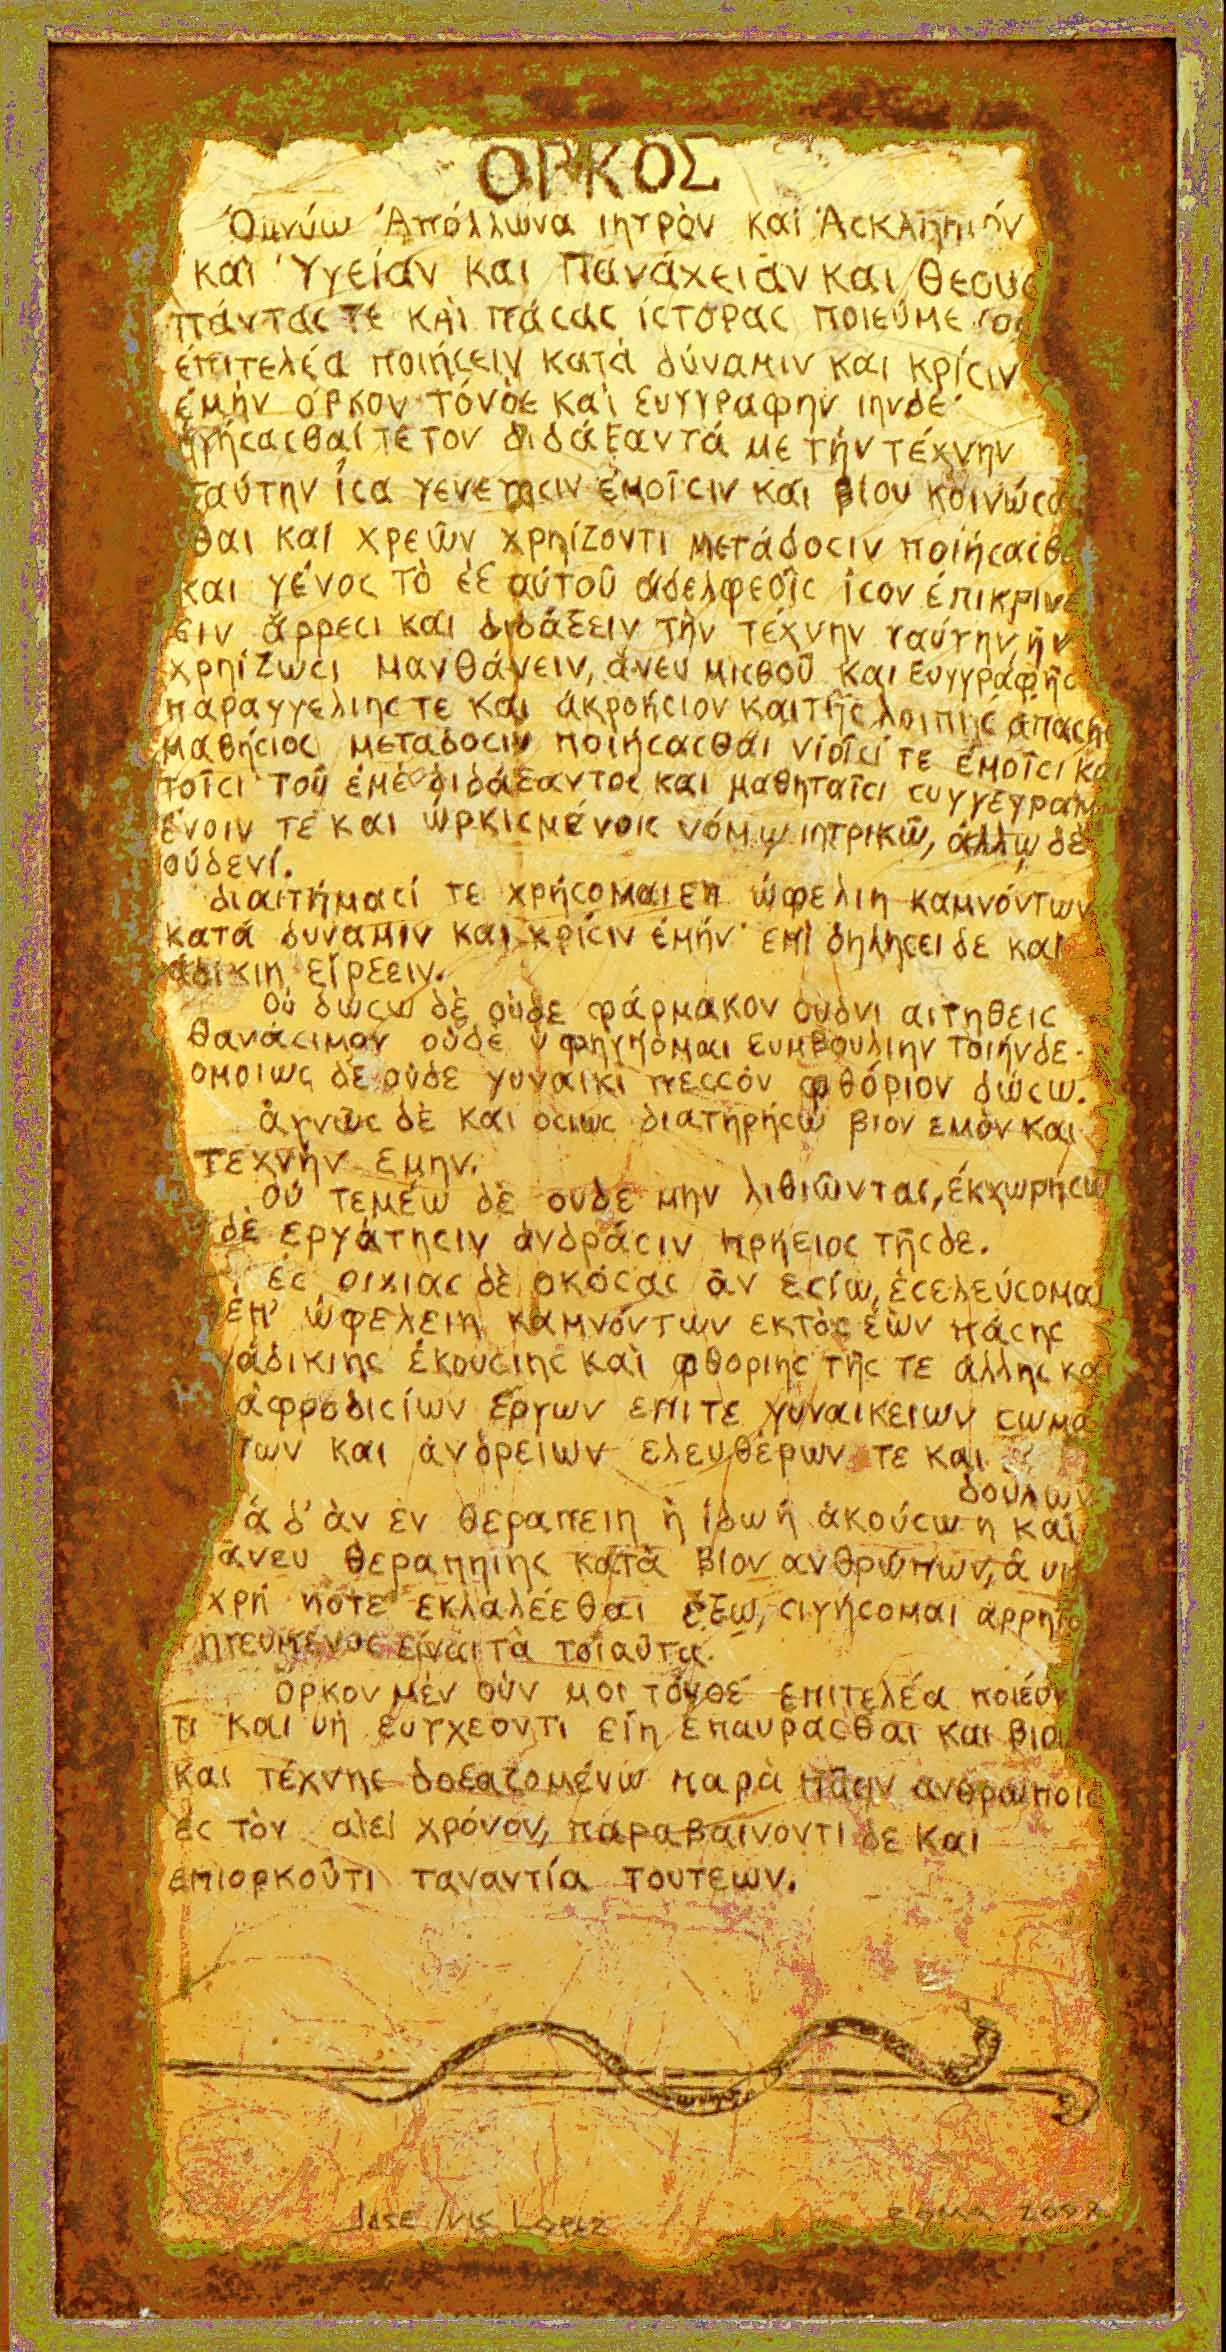 ΟΡΚΟΣ
Ὀμνύω Ἀπόλλωνα ιητρὸν καὶ Ἀϲκληπιόν
καὶ Ὑγείαν και Πανάχειαν και θεους
πάνταϲ τε κὰι πάϲαϲ ίϲτοραϲ ποιεύμε
ἐπιτελέα ποιήϲειν κατά δύναμιν και κρίϲιν
ἐμήν ορκον τόνδε καὶ ξυγγραφην
ηγήϲαϲθαι τε τον διδάξαντά με τήν τέχνην
ταύτην ἴϲα γενετηϲιν ἐμοῖϲιν και βίου κοινώϲα
θαι καί χρεῶν χρηίζοντι μετάδοϲιν ποιήϲαϲθ
και γένοϲ τὸ ἐξ αύτοῦ άδελφεοῖϲ ἴϲον έπικριν
ειν ἄρρεϲι και διδάξειν τὴν τέχνην ταύτην, ἢν
χρηίζωϲι μανθάνειν, άνευ μιϲθοῦ και ξυγγραφῆϲ
παραγγελιηϲ τε και άκροήϲιον και τῆϲ λοιπηϲ άπαϲη
μαθήϲιοϲ μεταδοϲιν ποιήϲαϲθαι υίοῖϲί τε ἐμοῖϲι και
τοῖϲι τοῦ ἐμὲ διδάξαντοϲ και μαθηταῖϲι ϲυγγεγραμ
ένοιν τε και ὡρκιϲμένοιϲ νόμῳ ιητρικῶ, άλλῳ δὲ
ούδενί.
διαιτήμαϲί τε χρήϲομαι επ ὠφελιη καμνόντων
κατά δυναμιν και κρίϲιν ἐμήν επι δηλήϲει δε και
άδικιη εἴρξειν.
Ού δώϲω δὲ οὐδε φάρμακον ουδνι αιτηθειϲ
θανάϲιμον οὐδὲ ὑφηγήομαι ξυμβουλιην τοιήνδε.
ομοιωϲ δὲ οὐδε γυναικι πεϲϲόν φθόριον δώϲω.
ἁγνῶϲ δὲ και οϲιωϲ διατηρήϲω βιον εμὸν και
τεχνην εμην.
Ού τεμέω δὲ ουδε μην λιθιῶνταϲ, έκχωρηϲω
δὲ εργάτηϲιν ἀνδράϲιν πρήξιοϲ τῆϲδε.
ἐϲ οικιαϲ δὲ οκόϲαϲ ἂν εϲίω, ἐϲελεύϲομα
ἐπ' ὠφελειη καμνόντων εκτὸϲ ἐὼν πάϲηϲ
άδικιηϲ ἑκουϲιηϲ καὶ φθοριηϲ τῆϲ τε άλληϲ κα
ἀφροδιϲίων ἔργων επι τε γυναικειων ϲωμα
των και ἀνδρειων ελευθέρων τε και
δουλων
ἁ δ' ἀν ἐν θεραπειη ἢ ίδω ή ἀκούϲω η και
ἄνευ θεραπηιηϲ κατὰ βιον ανθρώπων, ἃ
χρή ποτε εκλαλέεθαι ἔξω, ϲιγήϲομαι αρρητα
ηγευμενοϲ εἶναι τὰ τοιαῦτα.
Ὅρκον μὲν οὐν μοι τόνδέ επιτελέα ποιέον
τι και υὴ ξυγχεοντι εἴη ἐπαυραϲθαι και βιου
και τέχνηϲ δοξαζομένω παρὰ πᾶϲιν ανθρωποιϲ
εϲ τὸν αιεὶ χρόνον, παραβαινοντι δε και
επιορκοῦτι ταναντία τουτεων.
Jose luis Lopez
Roma 2008